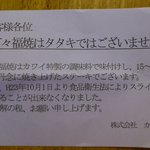 客様各位
々福焼はタタキではございませ
福焼はカワイ特製の調味料で味付けし、15～
丹念に焼き上げたステーキでございます。
成23年10月1日より食品衛生法によりスライ
ることが出来なくなりました。
解の程、お願い申し上げます。
株式会社 カ